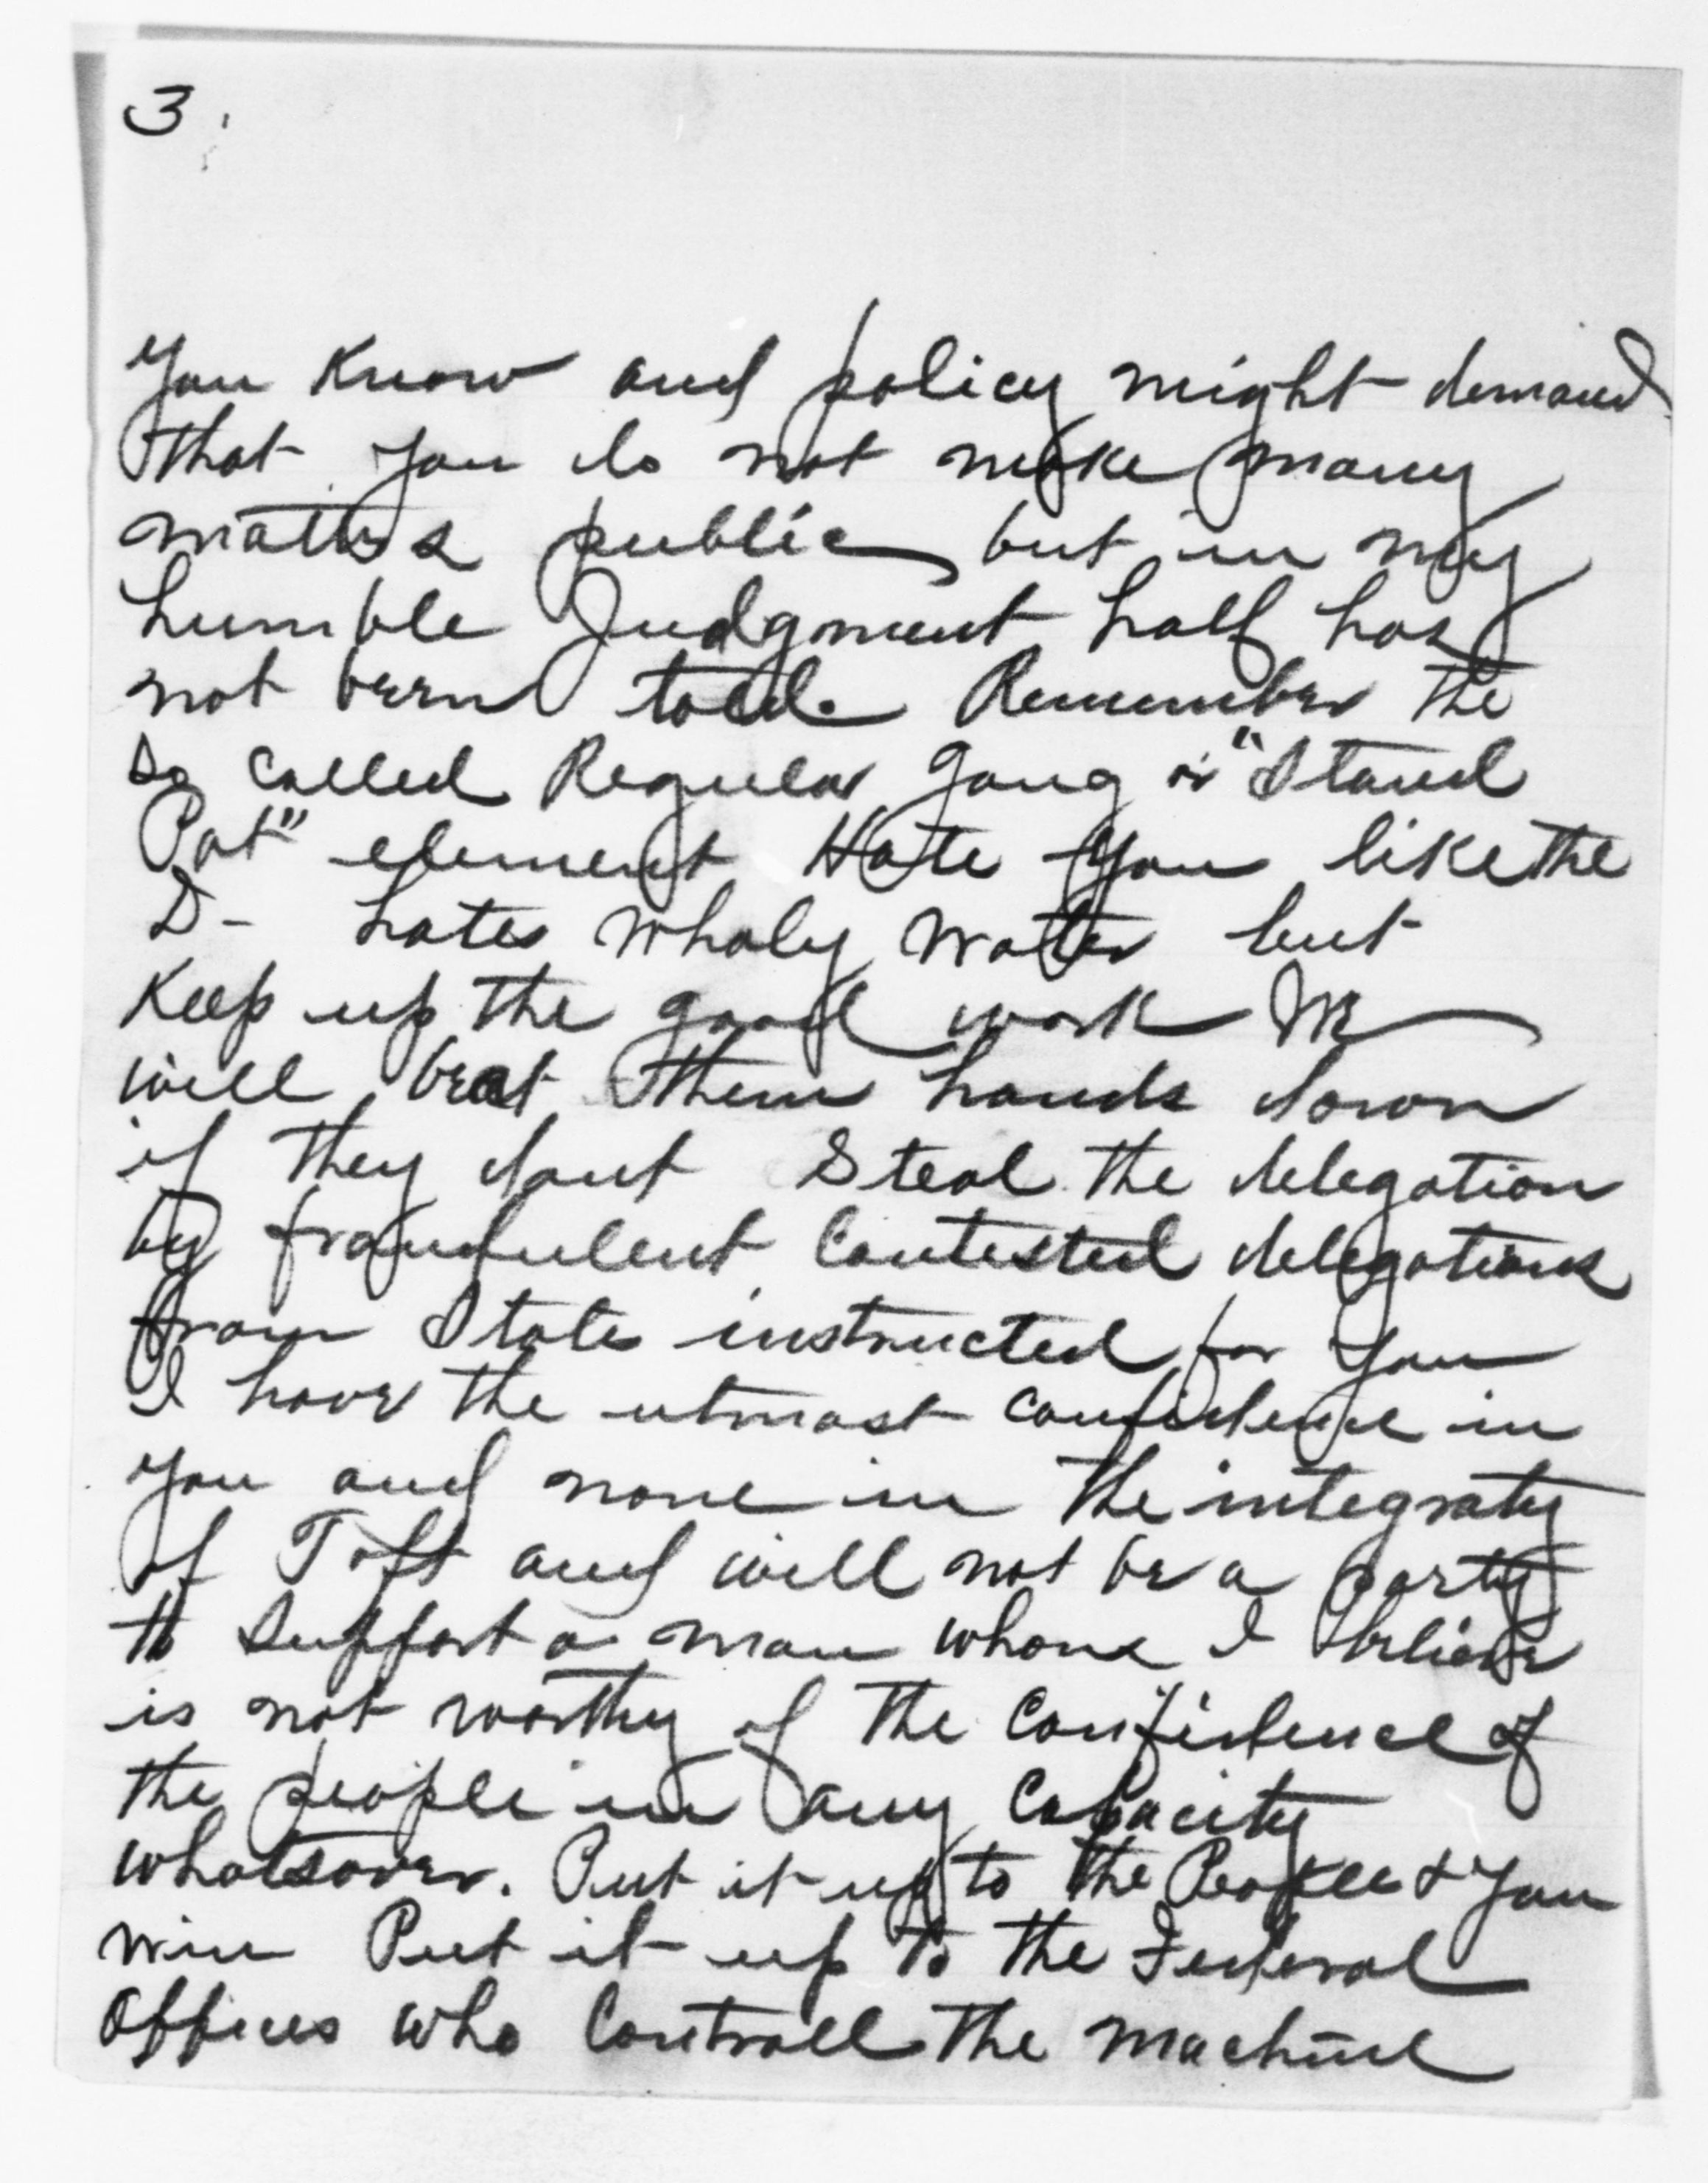 3.
You Know and policy might demand
that you do not make many
matters public but in my
humble Judgment half has
not been told. Remember the
so called Regular gang or "Stand
Pat" element Hate you like the
D- hates wholy water but
Keep up the good work We
will beat them hands down
if they dont Steal the delegation
by fraudulent Contested delegations
from State instructed for you
I have the utmost confidence in
you and none in the integraty
of Taft and will not be a party
to support a man whome I believe
is not worthy of the Confidence of
the people in any Capacity
whatsover. Put it up to the People & you
win Put it up to the Federal
Offices who Controll the machine